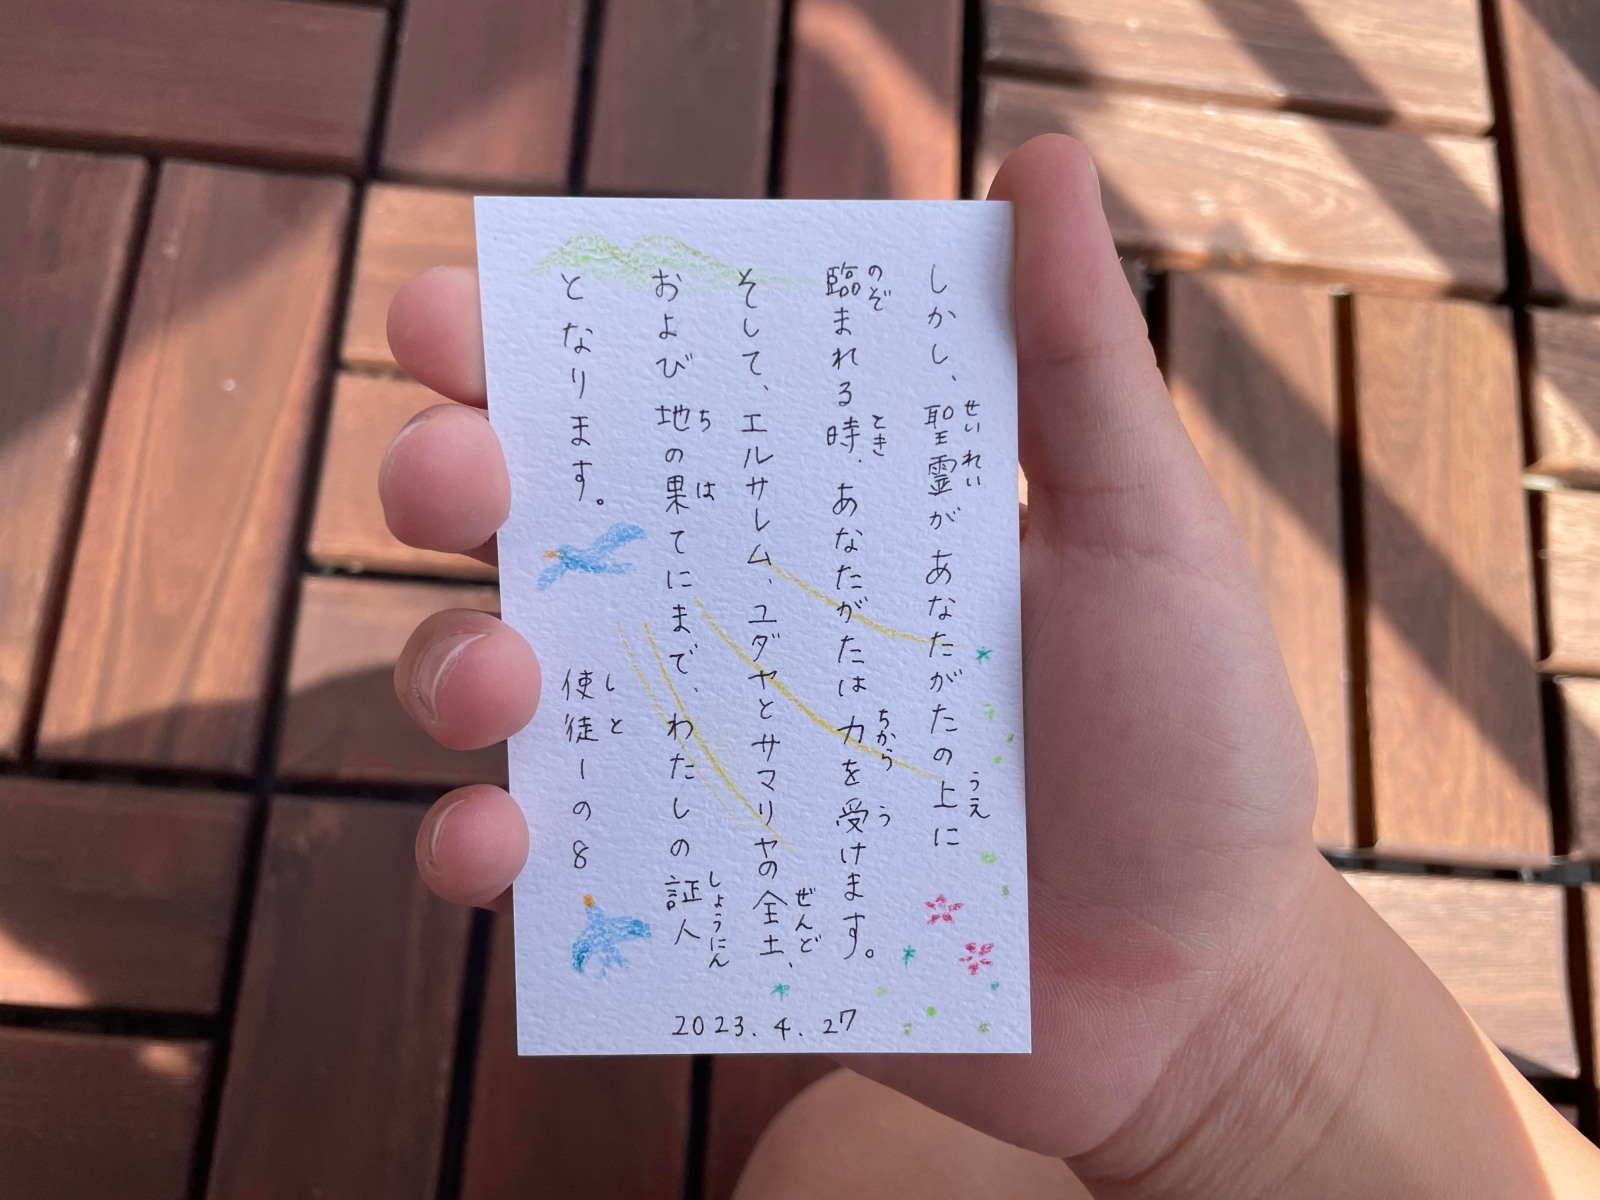 しかし、聖霊があなたがたの上に
せいれい
うえ
臨まれる時、あなたがたは力を受けます。
のぞ
とき
ちから
う
そして、エルサレム、ユダヤとサマリヤの全土、
ぜんど
および地の果てにまで、わたしの証人
ち
は
しょうにん
となります。
使徒1の8
しと
2023.4.27